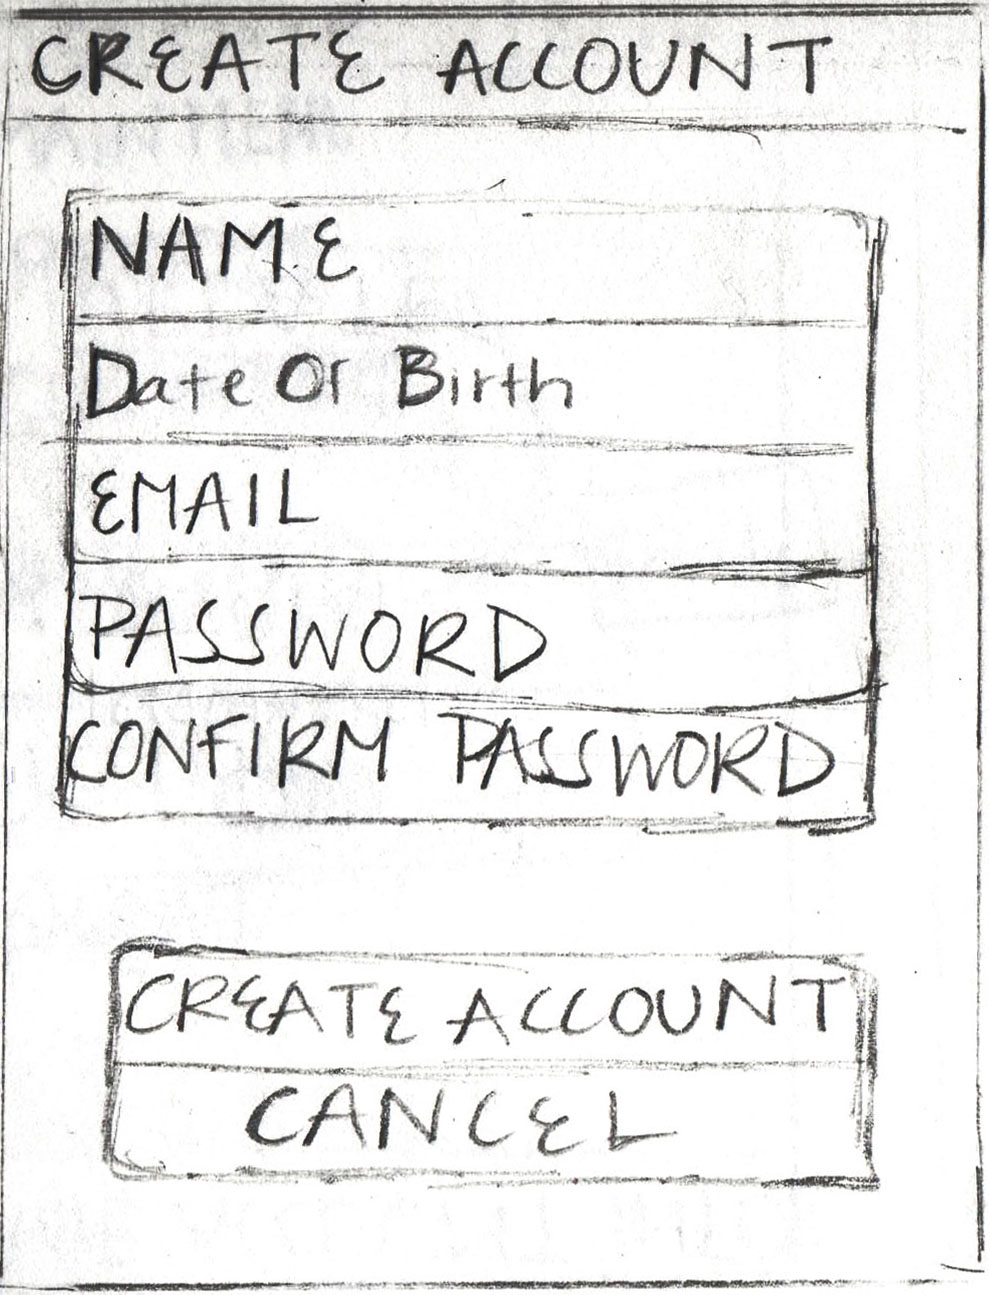 CREATE ACCOUNT
NAME
Date Of Birth
EMAIL
PASSWORD
CONFIRM PASSWORD
CREATE ACCOUNT
CANCEL